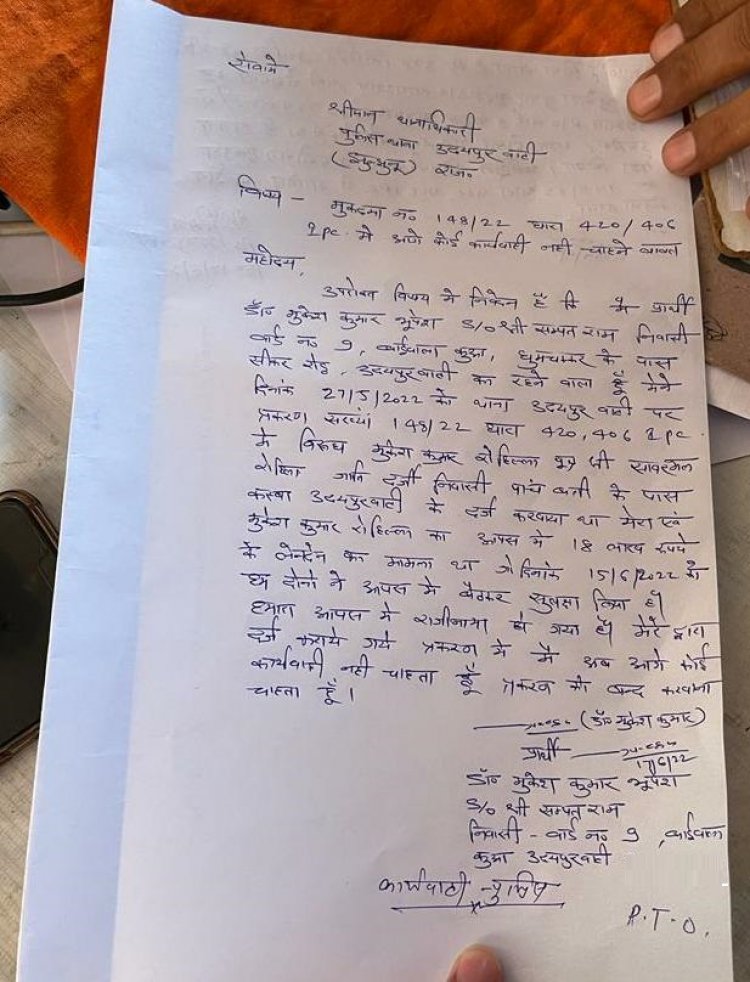 सेवामे
श्रीमान थानाधिकारी
पुलिस थाना उदयपुरवाटी
(झुन्झुनू) राज०
विषय - मुकदमा न० 148/22 धारा 420/406
Ipc मे आगे कोई कार्यवाही नही चाहने बाबत
महोदय,
उपरोक्त विषय मे निवेदन है कि मै प्रार्थी
डॉ० मुकेश कुमार भूपेश S/o श्री सम्पत राम निवासी
वार्ड न० 9, कुआ, घुमचक्कर के पास
सीकर रोड, उदयपुरवाटी का रहने वाला हूँ मैने
दिनांक 27/5/2022 को थाना उदयपुरवाटी पर
प्रकरण संख्या 148/22 धारा 420, 406 Ipc.
मे विरूध मुकेश कुमार रोहिल्ला पुत्र श्री सावरमल
रोहिला जाति दर्जी निवासी पांच बत्ती के पास
कस्बा उदयपुरवाटी के दर्ज करवाया था मेरा एवं
मुकेश कुमार रोहिल्ला का आपस मे 18 लाख रुपये
के लेनदेन का मामला था जो दिनांक 15/6/2022 को
हम दोनो ने आपस मे बैठकर सुलझा लिया है।
हमारा आपस मे राजीनामा हो गया है। मेरे द्वारा
दर्ज कराये गये प्रकरण मे मैं अब आगे कोई
कार्यवाही नही चाहता हूँ प्रकरण को बन्द करवाना
चाहता हूँ।
(डॉ० मुकेश कुमार)
प्रार्थी
17/6/22
डॉ० मुकेश कुमार भूपेश
S/o श्री सम्पत राम
निवासी - वार्ड न० 9,
कुआ उदयपुरवाटी
कार्यवाही पुलिस
P.T.O.